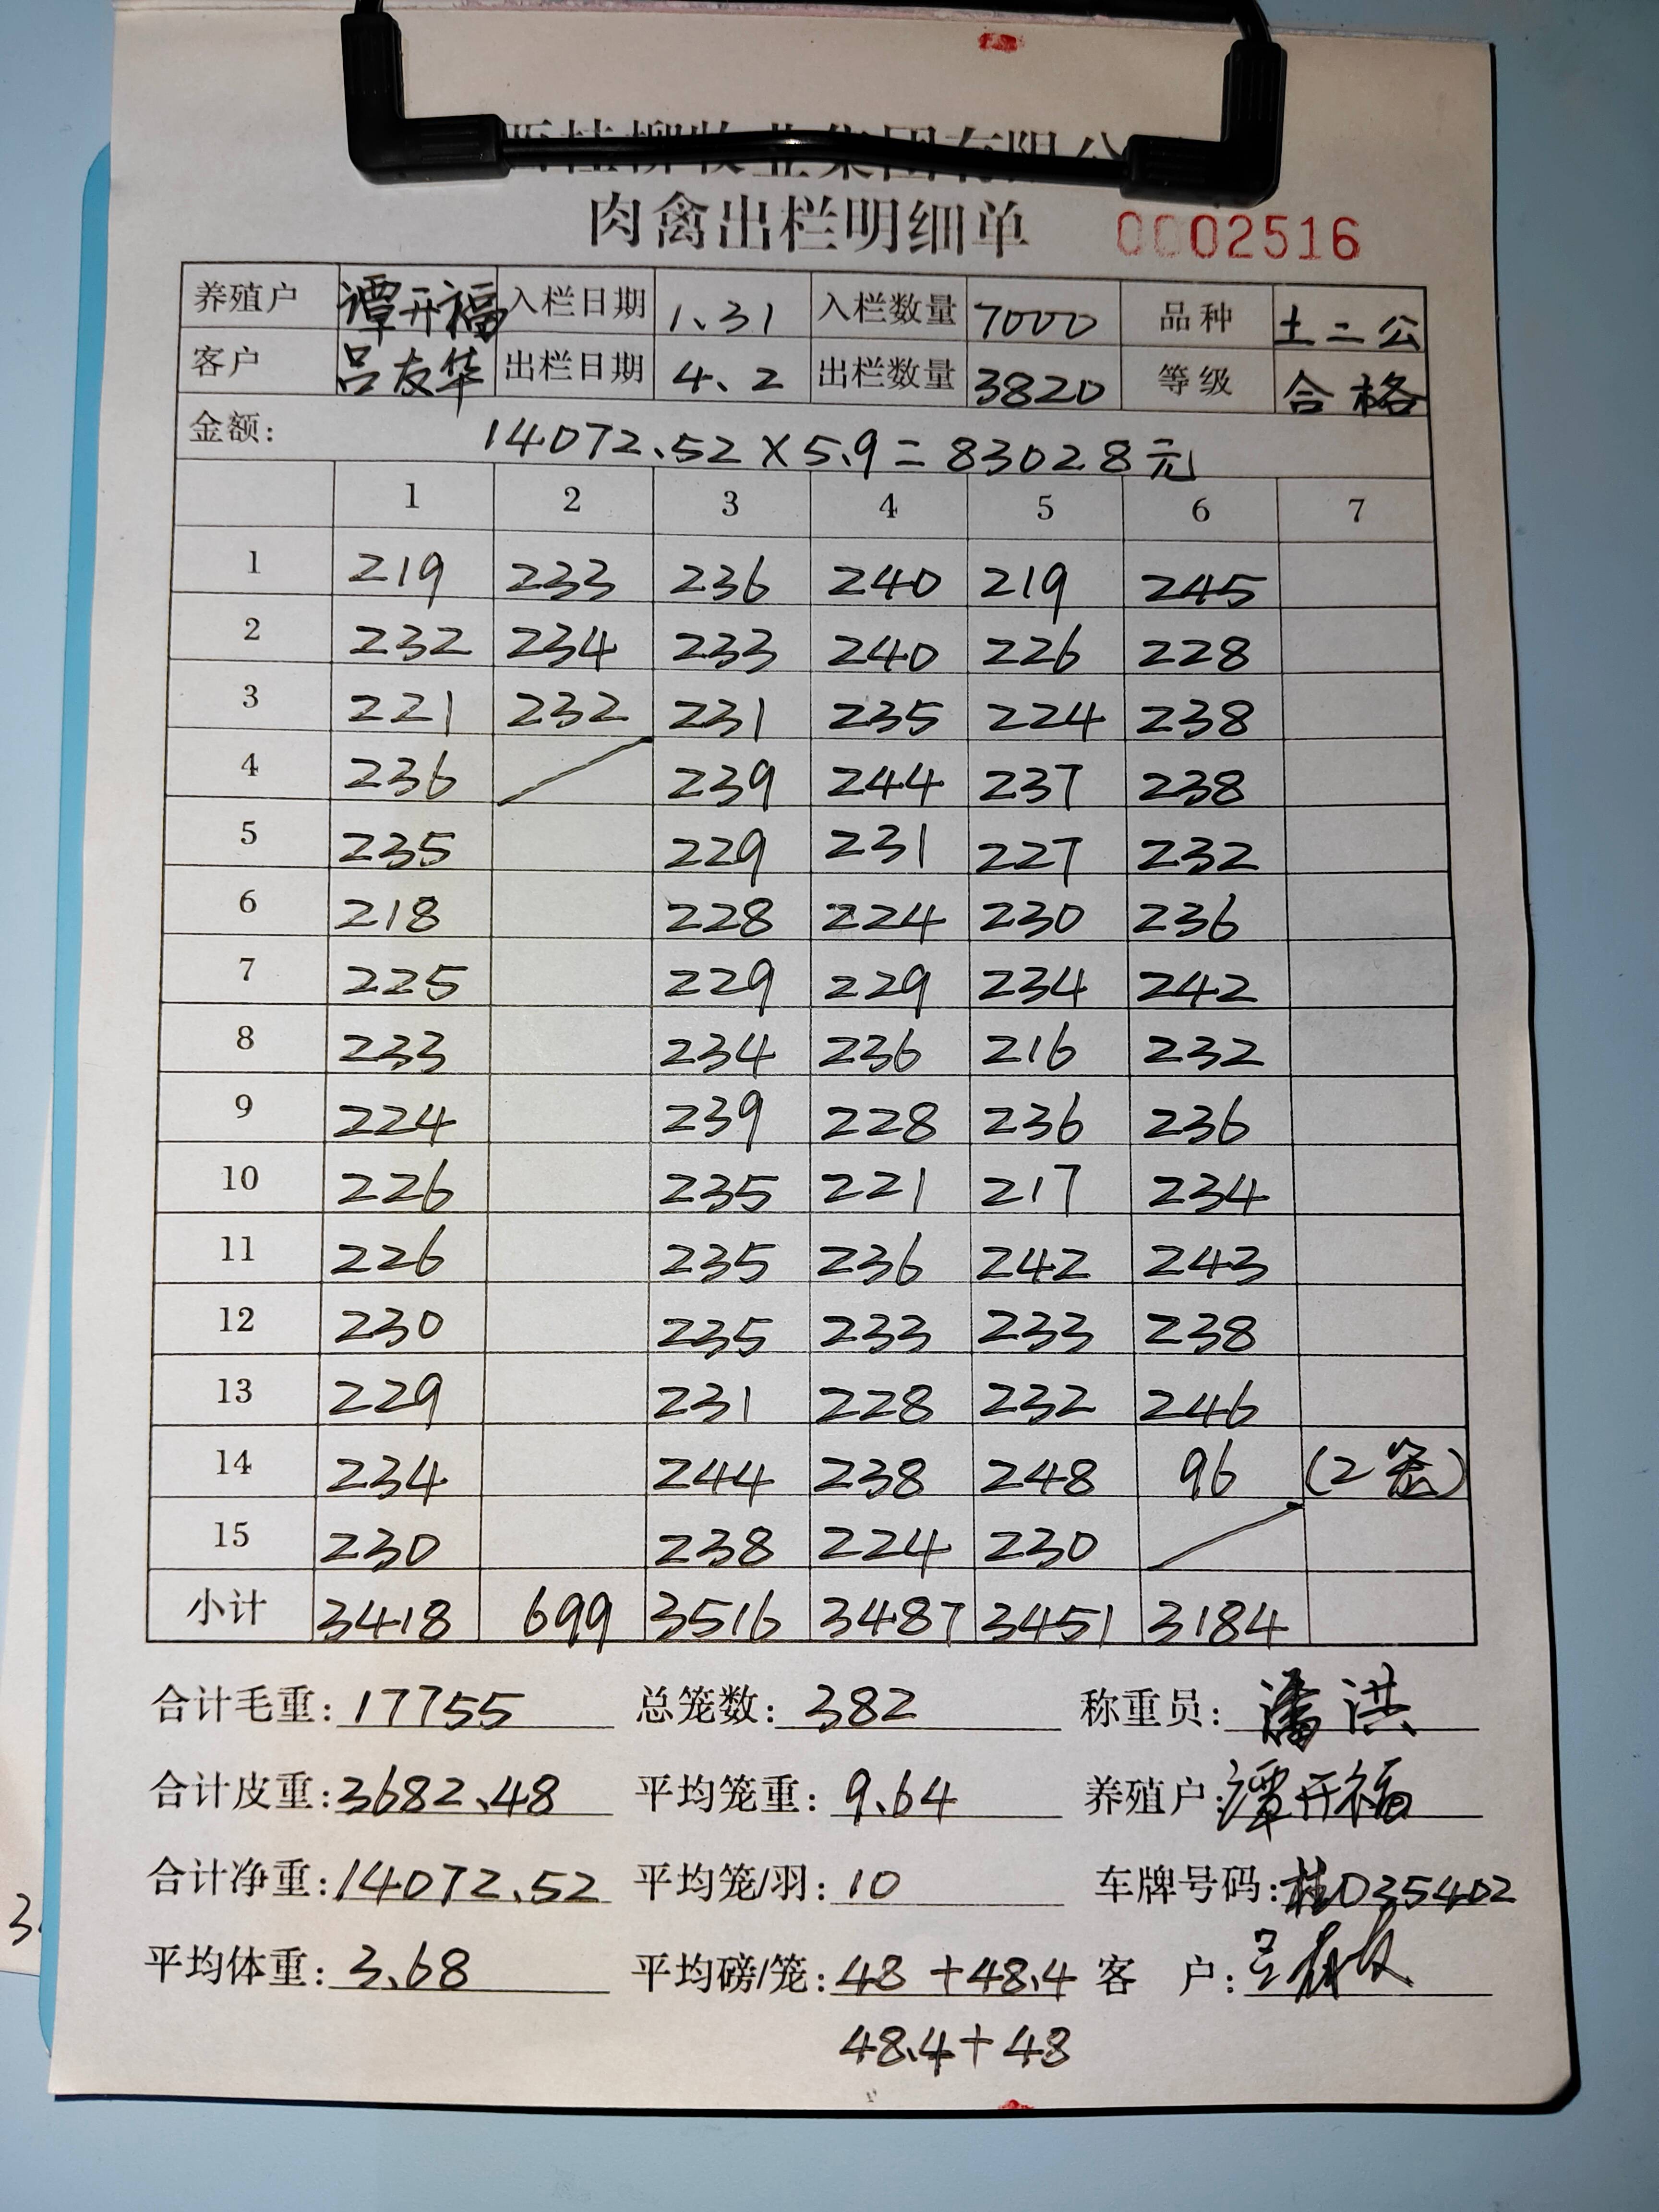 西桂柳牧业集团有限公
肉禽出栏明细单 0002516
养殖户 谭开福 入栏日期 1.31 入栏数量 7000 品种 土二公
客户 吕友华 出栏日期 4.2 出栏数量 3820 等级 合格
金额: 14072.52×5.9=83028元
1 2 3 4 5 6 7
1 219 233 236 240 219 245
2 232 234 233 240 226 228
3 221 232 231 235 224 238
4 236 239 244 237 238
5 235 229 231 227 232
6 218 228 224 230 236
7 225 229 229 234 242
8 233 234 236 216 232
9 224 239 228 236 236
10 226 235 221 217 234
11 226 235 236 242 243
12 230 235 233 233 238
13 229 231 228 232 246
14 234 244 238 248 96 (2笼)
15 230 238 224 230
小计 3418 699 3516 3487 3451 3184
合计毛重: 17755 总笼数: 382 称重员: 潘洪
合计皮重: 3682.48 平均笼重: 9.64 养殖户: 谭开福
合计净重: 14072.52 平均笼/羽: 10 车牌号码: 桂D35402
平均体重: 3.68 平均磅/笼: 48+48.4 客 户:
48.4+48
3